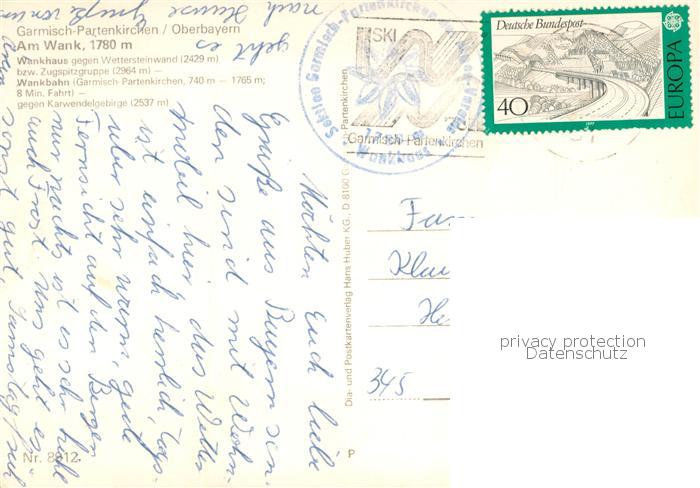 Garmisch-Partenkirchen / Oberbayern
Am Wank, 1780 m
Wankhaus gegen Wettersteinwand (2429 m)
bzw. Zugspitzgruppe (2964 m) —
Wankbahn (Garmisch-Partenkirchen, 740 m — 1765 m;
8 Min. Fahrt) —
gegen Karwendelgebirge (2537 m)
Nr. 8812
Dia- und Postkartenverlag Hans Huber KG., D 8100 G
-Partenkirchen
P
SKI
Garmisch-Partenkirchen
Sektion Garmisch-Partenkirchen
Wankhaus
Deutsche Bundespost
40
EUROPA
1977
Möchten Euch liebe
Grüße aus Bayern sen-
den sind mit Wohn-
mobil hier, das Wetter
ist einfach herrlich, tags-
über sehr warm, gute
Fernsicht auf den Bergen
nur nachts ist es sehr kalt
auch Frost. Uns geht es
sonst gut, Samstag
geht es
nach Hause
Fam
Klau
He
345
privacy protection
Datenschutz